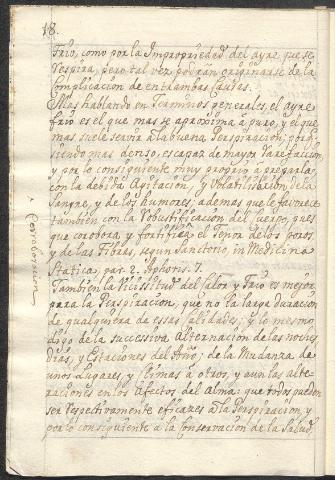 18.
Frio, como por la Impropriedad del ayre que se
respira, pero tal vez podrán originarse de la
Complicacion de entrambas causas.
Mas hablando en terminos generales, el ayre
frio es el que mas se aproxima à puro, y el que
mas suele servir à la buena Perspiracion; por
siendo mas denso, es capaz de mayor Rarefaccion
y por lo consiguiente muy proprio à pregarla
con la debida Agitacion, y Volatilisacion de la
Sangre, y de los humores; ademas que le favorece
tambien con la Robustificacion del Cuerpo, pues
que corobora y fortifica el Tenor de los Poros
y de las Fibras, segun Sanctorio in Medicina
Statica, par. 2. Aphoris. 7.
Corroboracion
Tambien la Vicissitud del Calor y Frio es mejor
para la Perspiracion, que no la larga duracion
de qualquiera de essas calidades; y lo mesmo
digo de la successiva Alternacion de las noches
dias, y Estaciones del Año; de la Mudanza de
unos Lugares, y Climas à otros, y aun las alte-
raciones en los Afectos del Alma: que todos pueden
ser respectivamente eficazes à la Perspiracion, y
por lo consiguiente à la Conservacion de la Salud.